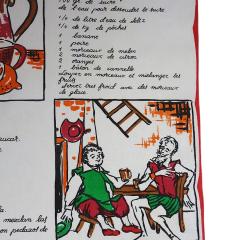 100 gr. de sucre
de l'eau pour dissoudre le sucre
1/4 de litre d'eau de Seltz
1/4 de kg de pêches
1 banane
1 poire
1 morceaux de melon
2 morceaux de citron
2 oranges
1 bâton de cannelle
Couper en morceaux et mélanger les
fruits
Servir très froid avec des morceaux
de glace.
ucar.
la
mezclan las
on pedazos de